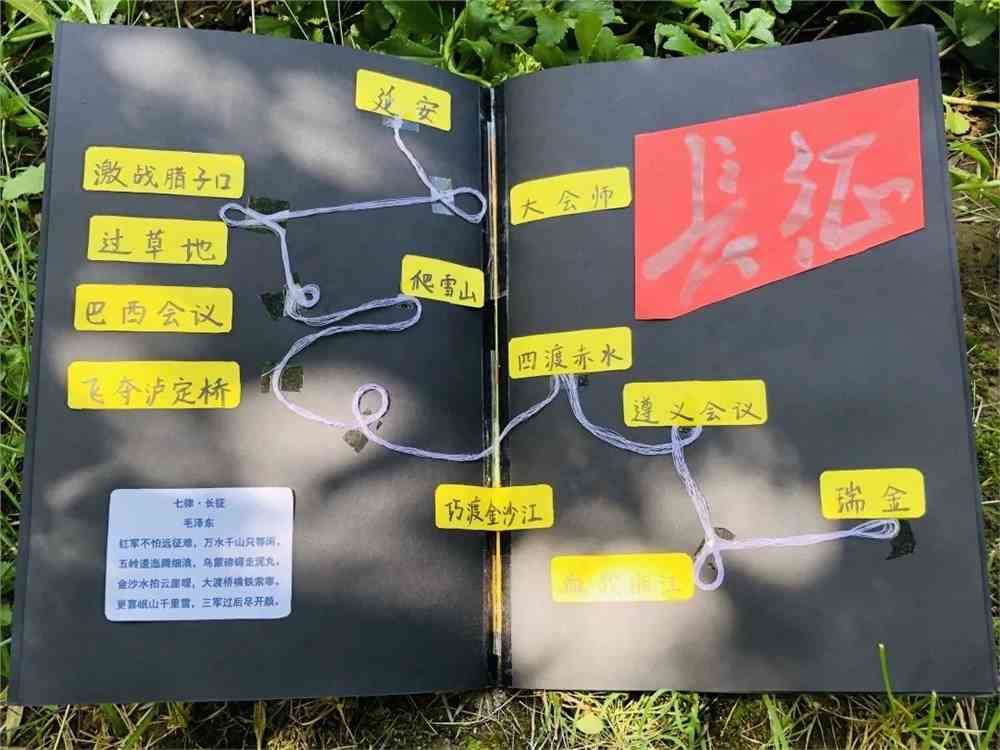 延安
激战腊子口
过草地
巴西会议
飞夺泸定桥
爬雪山
七律·长征
毛泽东
红军不怕远征难，万水千山只等闲。
五岭逶迤腾细浪，乌蒙磅礴走泥丸。
金沙水拍云崖暖，大渡桥横铁索寒。
更喜岷山千里雪，三军过后尽开颜。
长征
大会师
四渡赤水
遵义会议
瑞金
巧渡金沙江
血战湘江